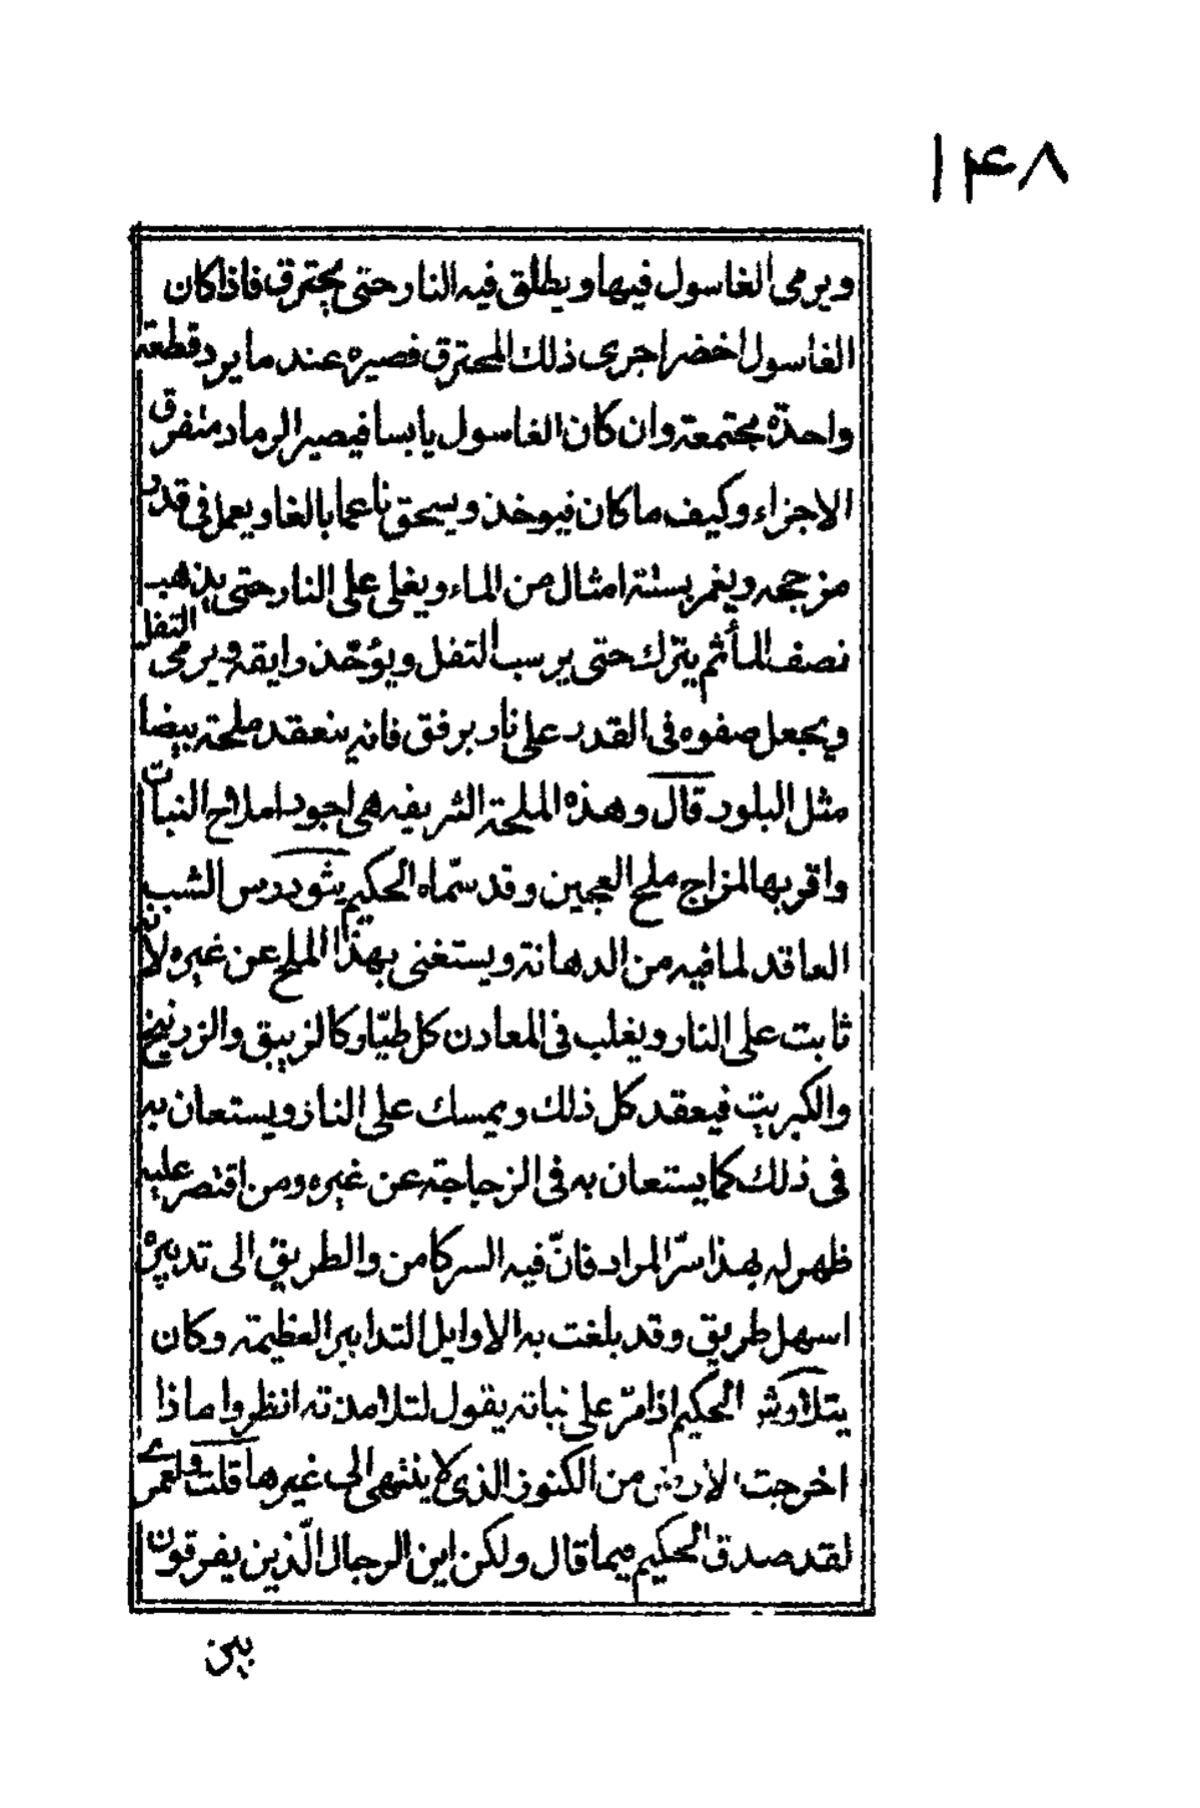 ١۴٨
ويرمى الغاسول فيها ويطلق فيه النار حتى يحترق فاذا كان
الغاسول اخضر اجرى ذلك المحترق فصيره عند ما يرد قطعة
واحدة مجتمعة وان كان الغاسول يابسا فيصير الرماد متفرق
الاجزاء وكيف ما كان فيوخذ ويسحق ناعما بالغا ويعمل فى قدر
مزججه ويغمر بستة امثال من الماء ويغلى على النار حتى يذهب
نصف الماثم يترك حتى يرسب التفل ويؤخذ رايقه ويرمى التفل
ويجعل صفوه فى القدر على نار برفق فانه ينعقد ملحة بيضا
مثل البلور قال وهذه الملحة الشريفه هى اجود املاح النبات
واقربها لمزاج ملح العجين وقد سمّاه الحكيم يثودرس الشب
العاقد لما فيه من الدهانة ويستغنى بهذا الملح عن غيره لانه
ثابت على النار ويغلب فى المعادن كل طيّار كالزيبق والزرنيخ
والكبريت فيعقد كل ذلك ويمسك على النار ويستعان به
فى ذلك كما يستعان به فى الزجاجة عن غيره ومن اقتصر عليه
ظهر له بهذا سرّ المراد فانّ فيه السر كامن والطريق الى تدبيره
اسهل طريق وقد بلغت به الاوايل التدابير العظيمة وكان
الحكيم اذا مرّ على نباته يقول لتلامذته انظروا ما ذا
اخرجت الارض من الكنوز الذى لا ينتهى الى غيرها قلت ولعمرى
لقد صدق الحكيم فيما قال ولكن اين الرجال الّذين يفرقون
بين